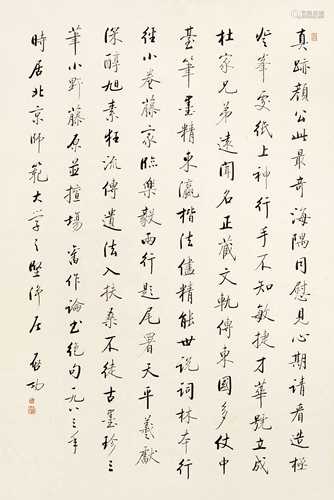 真跡顏公此最奇海隅同慰見心期請看造極
登峯處紙上神行手不知敏捷才華號立成
杜家兄弟遠聞名正藏文軌傳東國多仗中
臺筆墨精東瀛楷法儘精能世說詞林本行
經小卷藤家臨樂毅兩行題尾署天平羲獻
深醇旭素狂流傳遺法入扶桑不徒古墨珍三
筆小野藤原並擅場 舊作論书絕句一九八三年
時居北京師範大学之堅淨居 啟功